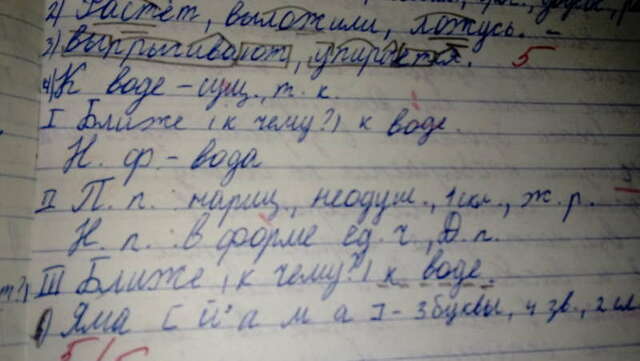 2) Растёт, выложили, ложусь. -
3) выпрыгивают, упирается. 5
4) К воде – сущ., т. к.
I Ближе (к чему?) к воде.
Н. ф – вода
II П. п. нариц., неодуш., 1 скл., ж. р.
Н. п. в форме ед. ч., Д. п.
III Ближе (к чему?) к воде.
) Яма [й' а м а] – 3 буквы, 4 зв., 2 сл
5/5